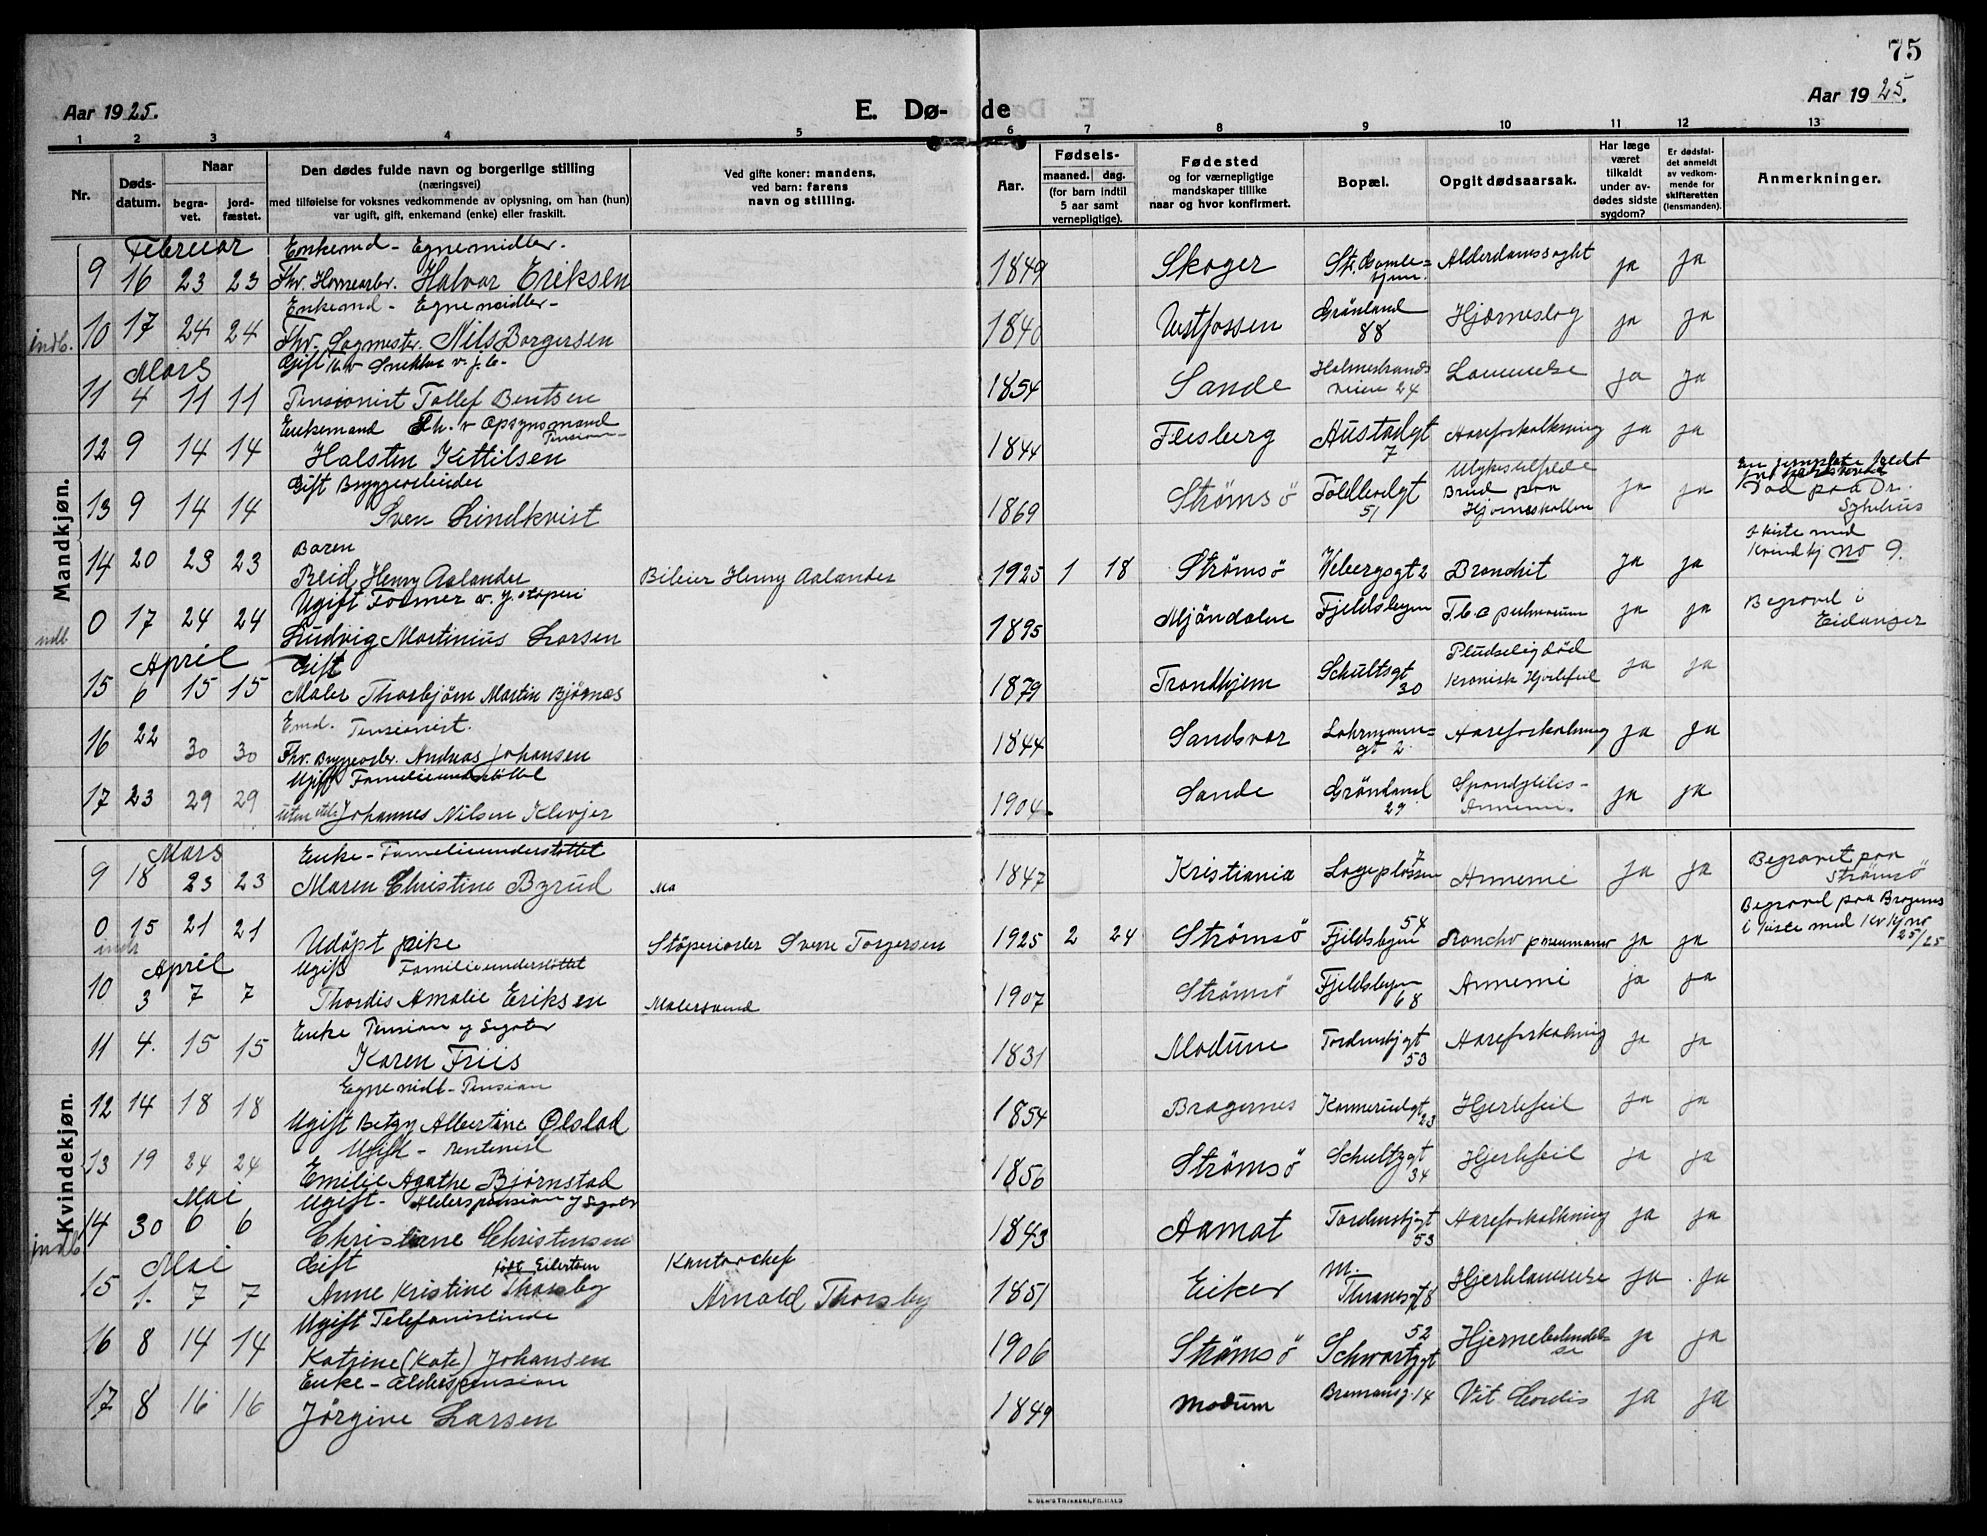 75
Aar 1925.
E. Dø- de
Aar 1925.
1 2 3 4 5 6 7 8 9 10 11 12 13
Nr.
Døds-
datum.
Naar
begra-
vet.
jord-
fæstet.
Den dødes fulde navn og borgerlige stilling
(næringsvei)
med tilføielse for voksnes vedkommende av oplysning, om han (hun)
var ugift, gift, enkemand (enke) eller fraskilt.
Ved gifte koner: mandens,
ved barn: farens
navn og stilling.
Aar.
Fødsels-
maaned. dag.
(for barn indtil
5 aar samt
vernepligtige).
Fødested
og for værnepligtige
mandskaper tillike
naar og hvor konfirmert.
Bopæl.
Opgit dødsaarsak.
Har læge
været
tilkaldt
under av-
dødes sidste
sygdom?
Er dødsfal-
det anmeldt
av vedkom-
mende for
skifteretten
(lensmanden).
Anmerkninger.
Mandkjøn.
Februar Enkemd - Egne midler.
9 16 23 23 Fhv. Halvor Eriksen 1849 Skoger Alderdomssvakt ja ja
Enkemd - Egne midler -
indb. 10 17 24 24 Fhv. Sagmester. Nils Borgersen 1840 Vestfossen Grønland 88 Hjerneslag ja ja
Mars Gift
11 4 11 11 Pensionist Tollef Bentsen 1854 Sande Holmestrands veien 24 Lammelse ja ja
Enkemand Fh. v Opsynsmand Pension-
12 9 14 14 Halsten Kittilsen 1844 Flesberg Austadgt 7 Aareforkalkning ja ja
Gift Bryggearbeider
13 9 14 14 Sven Lindkvist 1869 Strømsö Toldbodgt 51 Ulykkestilfælde Brud paa Hjerneskallen ja ja
Baren
14 20 23 23 Reid Henry Aalander Bileier Henry Aalander 1925 1 18 Strømsö Webergsgt 2 Bronchit ja ja I kiste med Kvindkj no 9.
Ugift Former v. J. støperi
indb 0 17 24 24 Ludvig Martinius Larsen 1895 Mjöndalen Fjeldsbyen T.b.c pulmonum ja ja Begravet i Eidanger
April Gift
15 6 15 15 Maler Thorbjørn Martin Bjørnæs 1879 Trondhjem Schultzgt 30 Pludselig död Kronisk Hjertefeil ja ja
Emd. Pensionist.
16 22 30 30 Fhv. Bryggearb. Andreas Johansen 1844 Sandsvær Lahrmanns- gt 2 Aareforkalkning ja ja
Ugift Familieunderstøttet
17 23 29 29 Johannes Nilsen Klevjer 1904 Sande Grönland 29 ja ja
Kvindekjøn.
Mars Enke - Familieunderstøttet
9 18 23 23 Maren Christine Byrud Ma 1847 Kristiania Lögepladsen 7 Annemi ja ja Begravet paa Strømsö
0 15 21 21 Udöpt pike Støperiarb Sverre Torgersen 1925 2 24 Strømsö Fjeldsbyen 54 Broncho pneumoni ja ja Begravet paa Bragernes i kiste med Kv kj no 25/25
indb
April Ugift Familieunderstøttet
10 3 7 7 Thordis Amalie Eriksen Malersvend 1907 Strømsö Fjeldsbyen 68 Annemi ja ja
Enke Pension og Legater
11 4. 15 15 Karen Friis 1831 Modum Tordenskjgt 53 Aareforkalkning ja ja
Egne midl - Pension
12 14 18 18 Ugift Betzy Albertine Ølstad 1854 Bragernes 23 Hjertefeil ja ja
Ugift - rentenist
13 19 24 24 Emilie Agathe Bjørnstad 1856 Strømsö Schultzgt 34 Hjertefeil ja ja
Mai Ugift - Alderspension og Legater
indb 14 30 6 6 Christiane Christensen 1843 Aamot Tordenskjgt 53 Aareforkalkning ja ja
Mai Gift født Eilertsen Kontorchef
15 1. 7 7 Anne Kristine Thorsby Arnold Thorsby 1851 Eiker M. Thranesgt 8 Hjertelammelse ja ja
Ugift Telefonistinde
16 8 14 14 Katrine (Kate) Johansen 1906 Strømsö Schwartzgt 52 Hjernebetændelse ja ja
Enke - alderspension
17 8 16 16 Jörgine Larsen 1849 Modum 14 Vit. Cordis ja ja